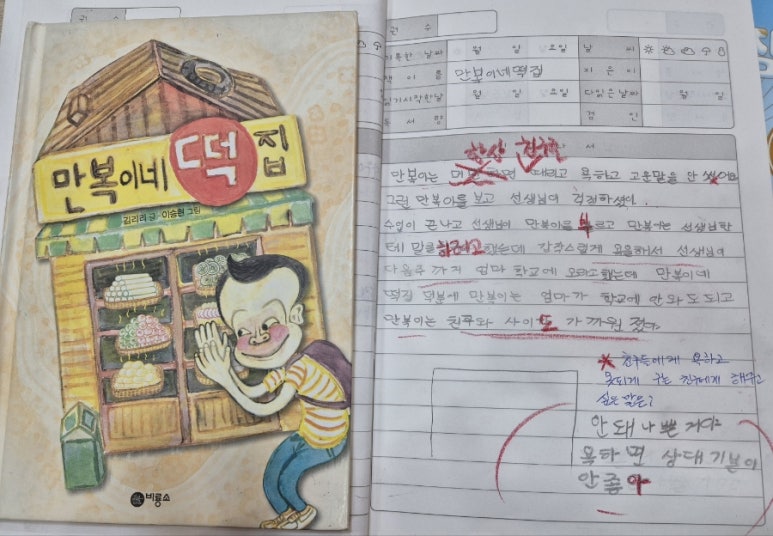 만복이네 떡 집
김리리 글·이승현 그림
비룡소
권 수
권 수
기록한 날짜 월 일 요일 날 씨
책 이 름 만복이네떡집 지 은 이
읽기시작한날 월 일 요일 다읽은날짜 월 일
독 서 량 확 인
서
항상 친구를
만복이는 때리고 욕하고 고운말을 안 썼어요
그런 만복이를 보고 선생님이 걱정하셨다.
수업이 끝나고 선생님이 만복이를 부르고 만복이는 선생님한
테 말을 하려고 했는데 갑작스럽게 욕을해서 선생님이
다음주 까지 엄마 학교에 오라고했는데 만복이네
떡집 덕분에 만복이는 엄마가 학교에 안와도 되고
만복이는 친구와 사이도 가까워 졌다.
친구들에게 욕하고
못되게 구는 친구에게 해주고
싶은 말은?
안돼 나쁜 거야
욕하면 상대 기분이
안좋아